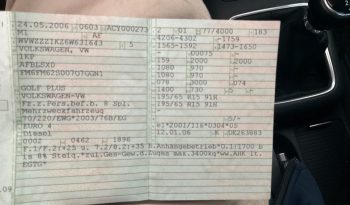 24.05.2006 0603 ACY000273 01 77/4000 183
M1 AF 4206-4302 -1759
WVWZZZ1KZ6W631643 5 1565-1592 1473-1650
VOLKSWAGEN, VW - 00075
1KP 159 2000 2000
AFBLSXD 1080 970
FM6FM62S007GTGGN1 1080 970 -
1030 730
GOLF PLUS 195/65 R15 91H
VOLKSWAGEN-VW 195/65 R15 91H
Fz.z.Pers.bef.b. 8 Spl. -
Mehrzweckfahrzeug
70/220/EWG*2003/76B/EG
EURO 4 e1*2001/116*0304*05
Diesel 12.01.06 K DK263883
0002 0462 1896
F.1/F.2:+25 u. 7.2/8.2:+35 b.Anhängebetrieb*O.1:1700 b
is 8% Steig.*zul.Ges-Gew.d.Zuges max.3400kg*ww.AHK lt.
EGTG*